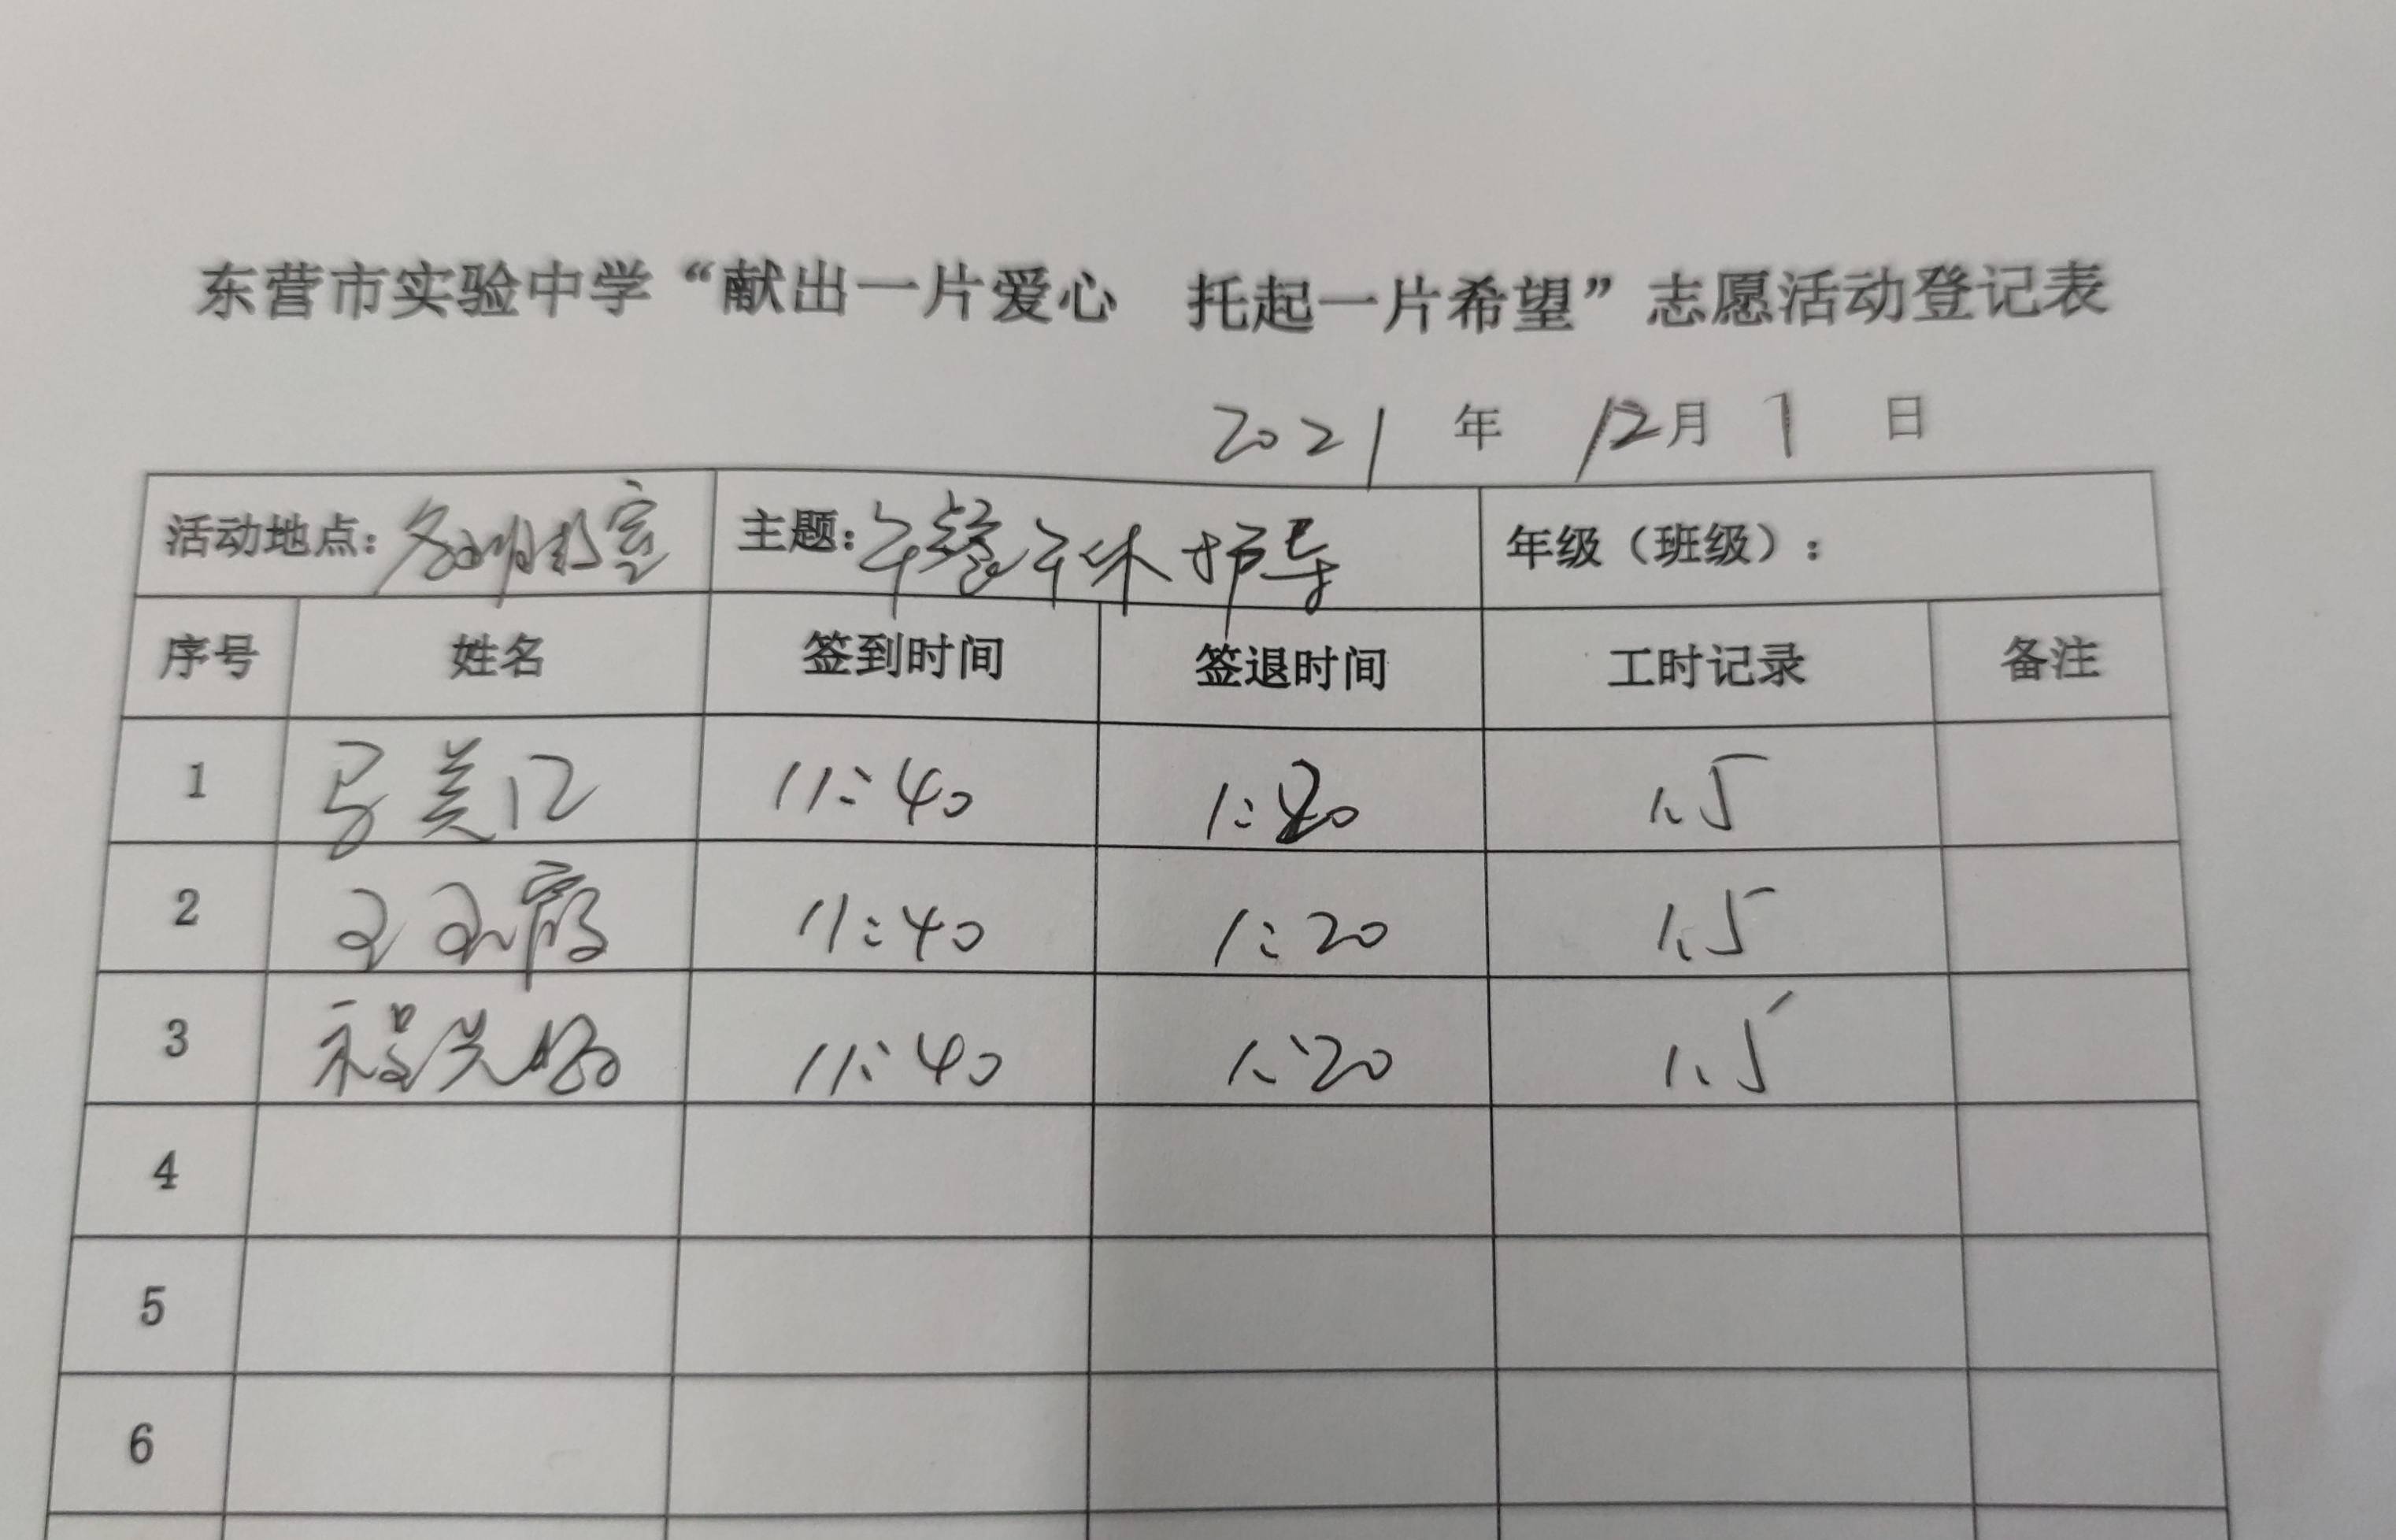 东营市实验中学“献出一片爱心 托起一片希望”志愿活动登记表
2021 年 12月 1 日
活动地点：各班教室 主题：午餐午休护导 年级（班级）：
序号 姓名 签到时间 签退时间 工时记录 备注
1 11:40 1:20 1.5
2 11:40 1:20 1.5
3 11:40 1:20 1.5
4
5
6